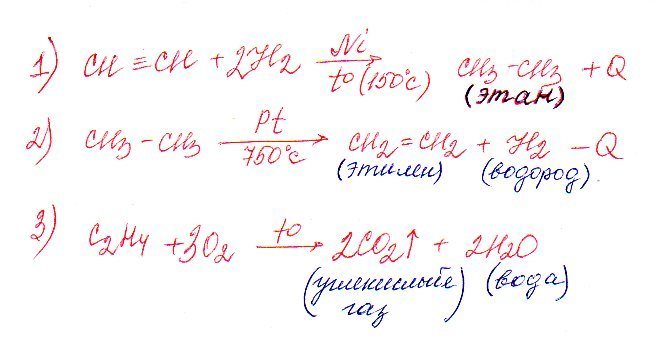 1) CH ≡ CH + 2H2 Ni → to (150°C) CH3 – CH3 + Q
(этан)
2) CH3 – CH3 Pt → 750°C CH2 = CH2 + H2 – Q
(этилен) (водород)
3) C2H4 + 3O2 to → 2CO2↑ + 2H2O
(углекислый газ) (вода)